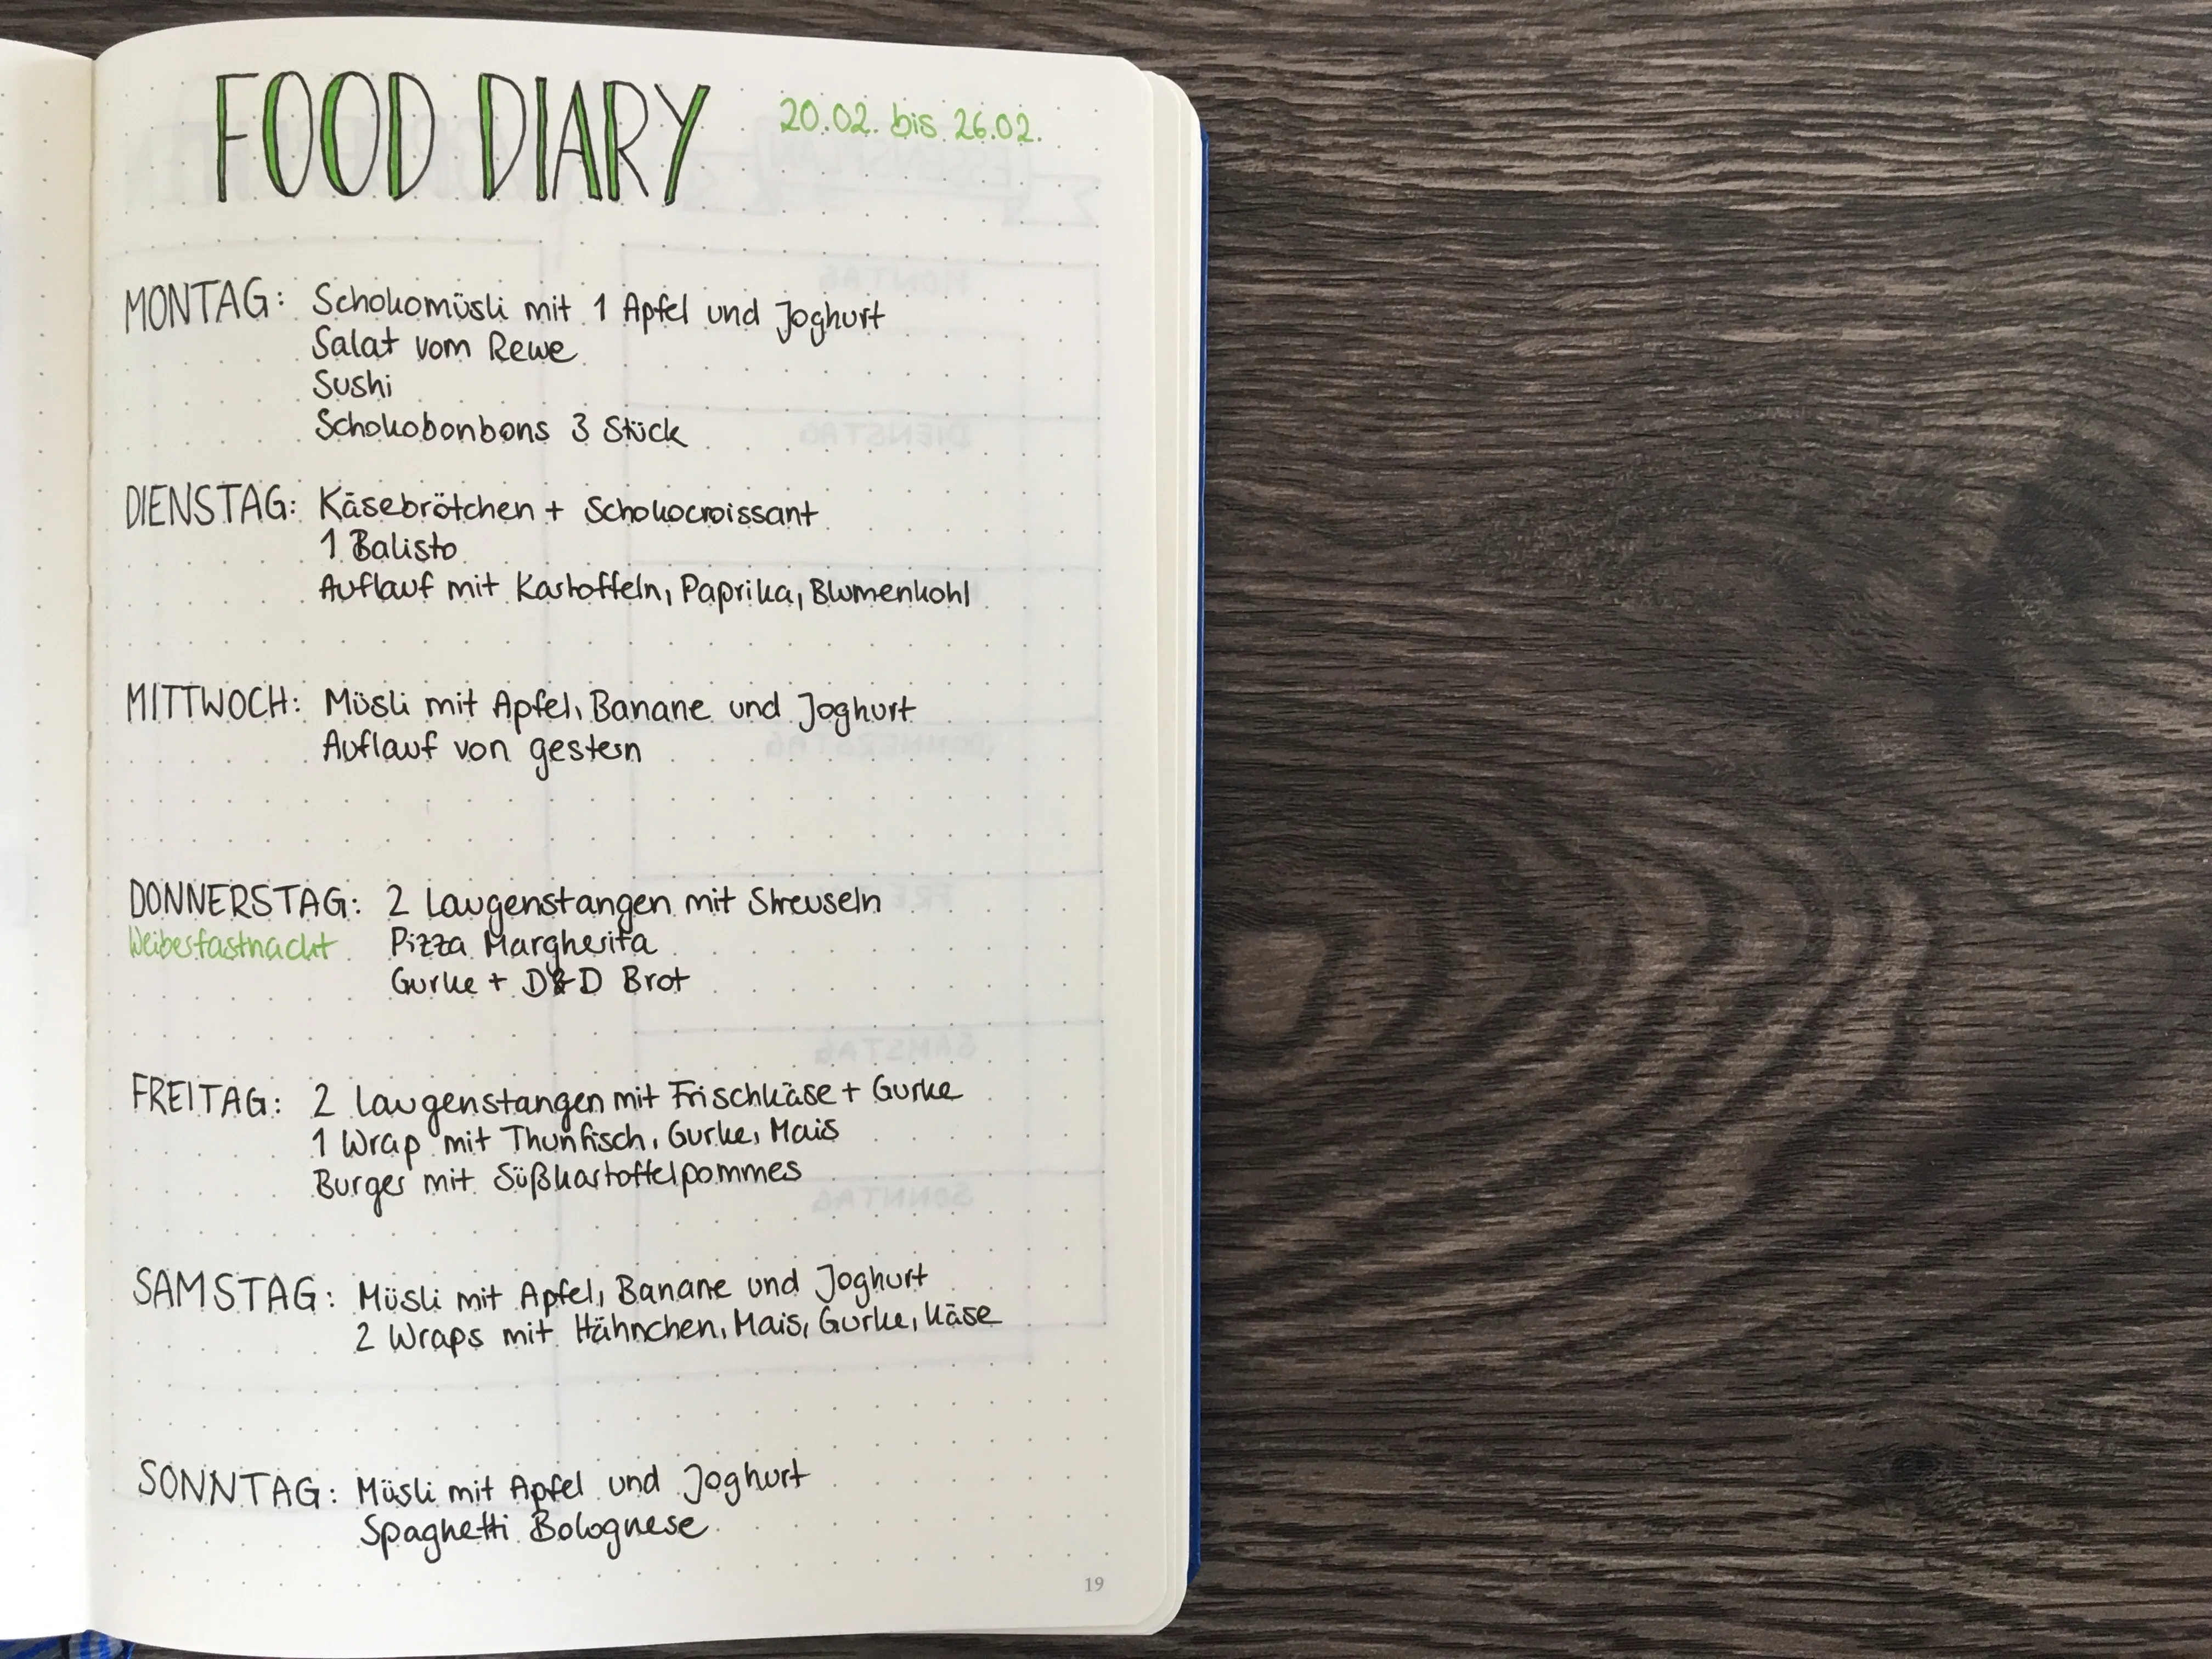 FOOD DIARY
20.02. bis 26.02.
MONTAG: Schokomüsli mit 1 Apfel und Joghurt
Salat vom Rewe
Sushi
Schokobonbons 3 Stück
DIENSTAG: Käsebrötchen + Schokocroissant
1 Balisto
Auflauf mit Kartoffeln, Paprika, Blumenkohl
MITTWOCH: Müsli mit Apfel, Banane und Joghurt
Auflauf von gestern
DONNERSTAG: 2 Laugenstangen mit Streuseln
Weiberfastnacht Pizza Margherita
Gurke + D&D Brot
FREITAG: 2 Laugenstangen mit Frischkäse + Gurke
1 Wrap mit Thunfisch, Gurke, Mais
Burger mit Süßkartoffelpommes
SAMSTAG: Müsli mit Apfel, Banane und Joghurt
2 Wraps mit Hähnchen, Mais, Gurke, Käse
SONNTAG: Müsli mit Apfel und Joghurt
Spaghetti Bolognese
19